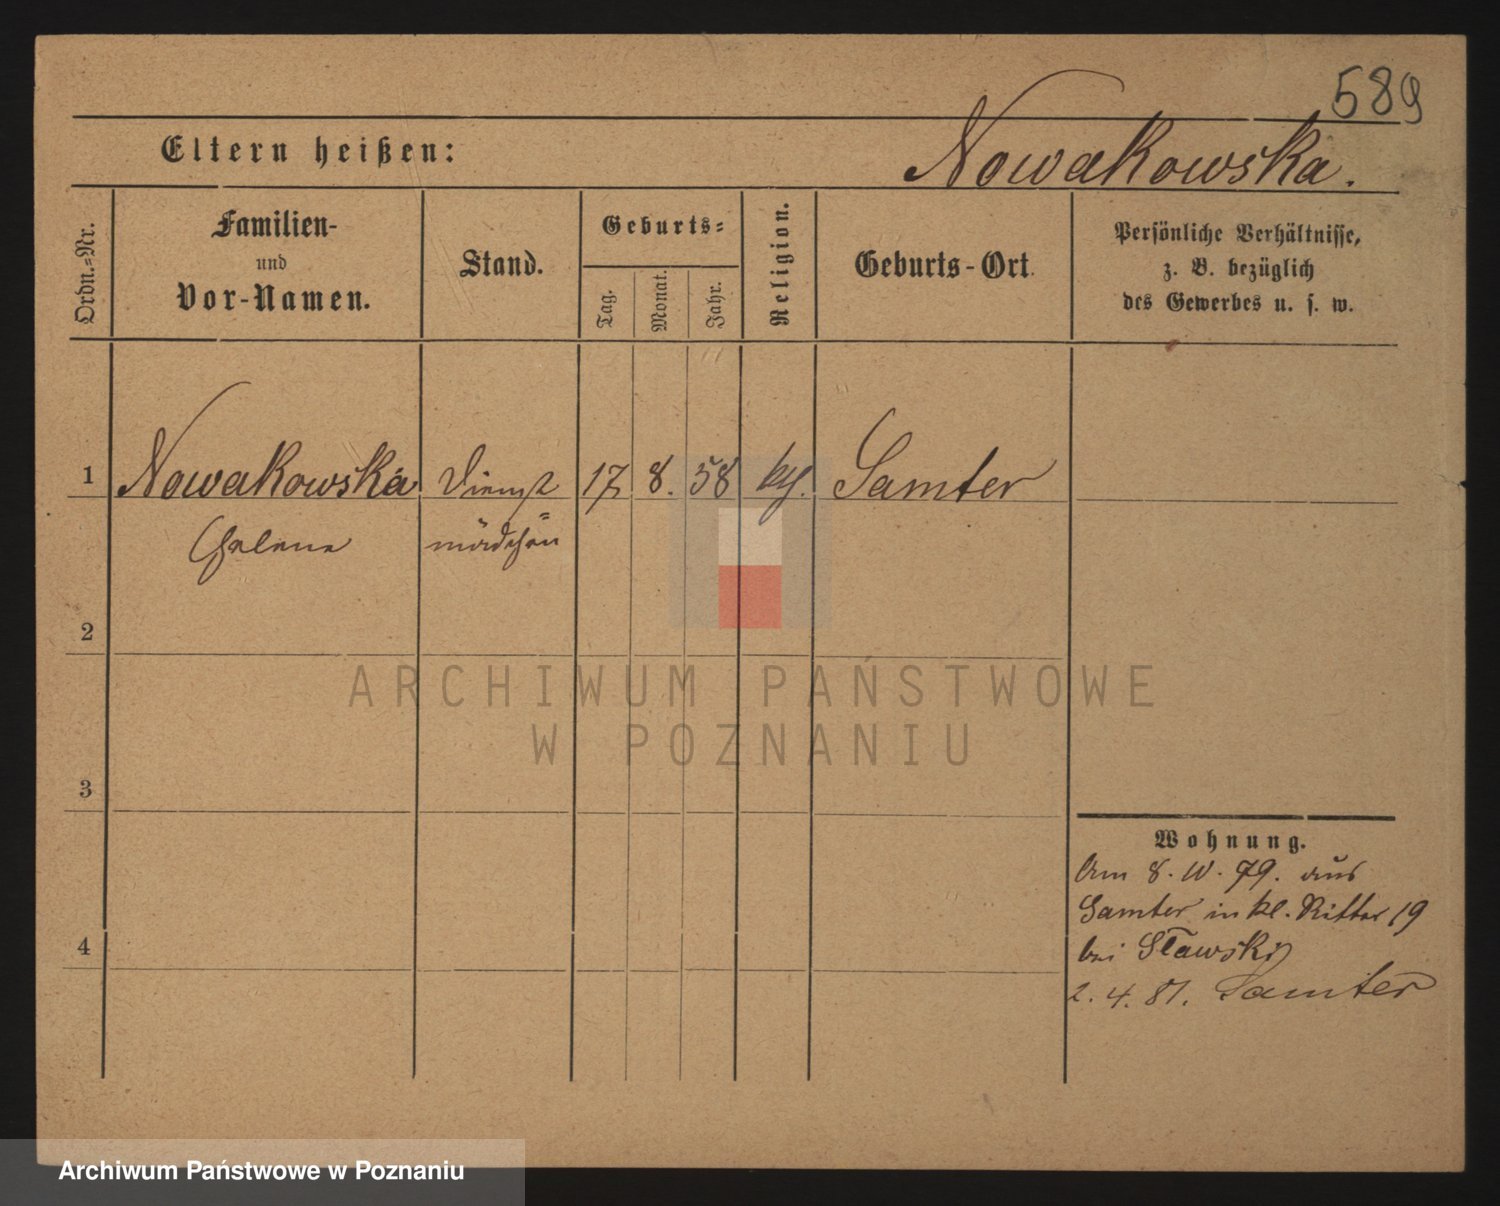 589
Eltern heißen:
Nowakowska.
Ordn.=Nr.
Familien-
und
Vor-Namen.
Stand.
Geburts=
Tag.
Monat.
Jahr.
Religion.
Geburts-Ort.
Persönliche Verhältnisse,
z. B. bezüglich
des Gewerbes u. s. w.
1
Nowakowska
Dienst
17
8.
58
kth.
Samter
Helene
mädchen
2
ARCHIWUM PAŃSTWOWE
W POZNANIU
3
Wohnung.
Am 8. 10. 79. aus
Samter in kl. Ritter 19
bei Sławski
4
2. 4. 81. Samter
Archiwum Państwowe w Poznaniu